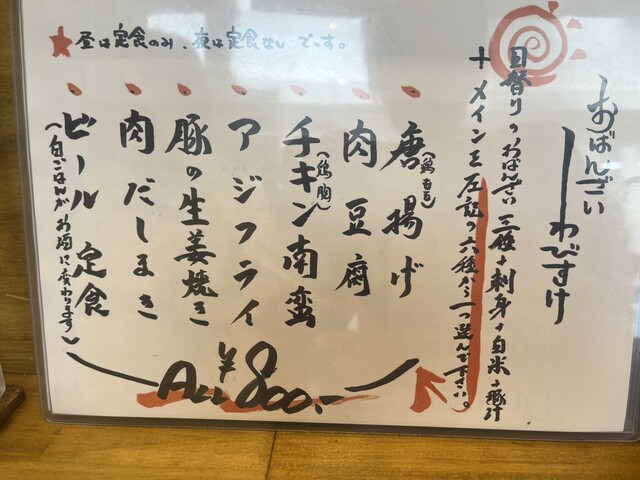 おばんざい
しわびすけ
日替りのおばんざい三種+刺身+白米+豚汁
+メインを左記の六種から一つ選んで下さい。
唐揚げ
(鶏もも)
肉豆腐
チキン南蛮
(鶏胸)
アジフライ
豚の生姜焼き
肉だしまき
ビール定食
(白ごはんがお酒に変わります)
All ¥800.-
★昼は定食のみ、夜は定食なしです。